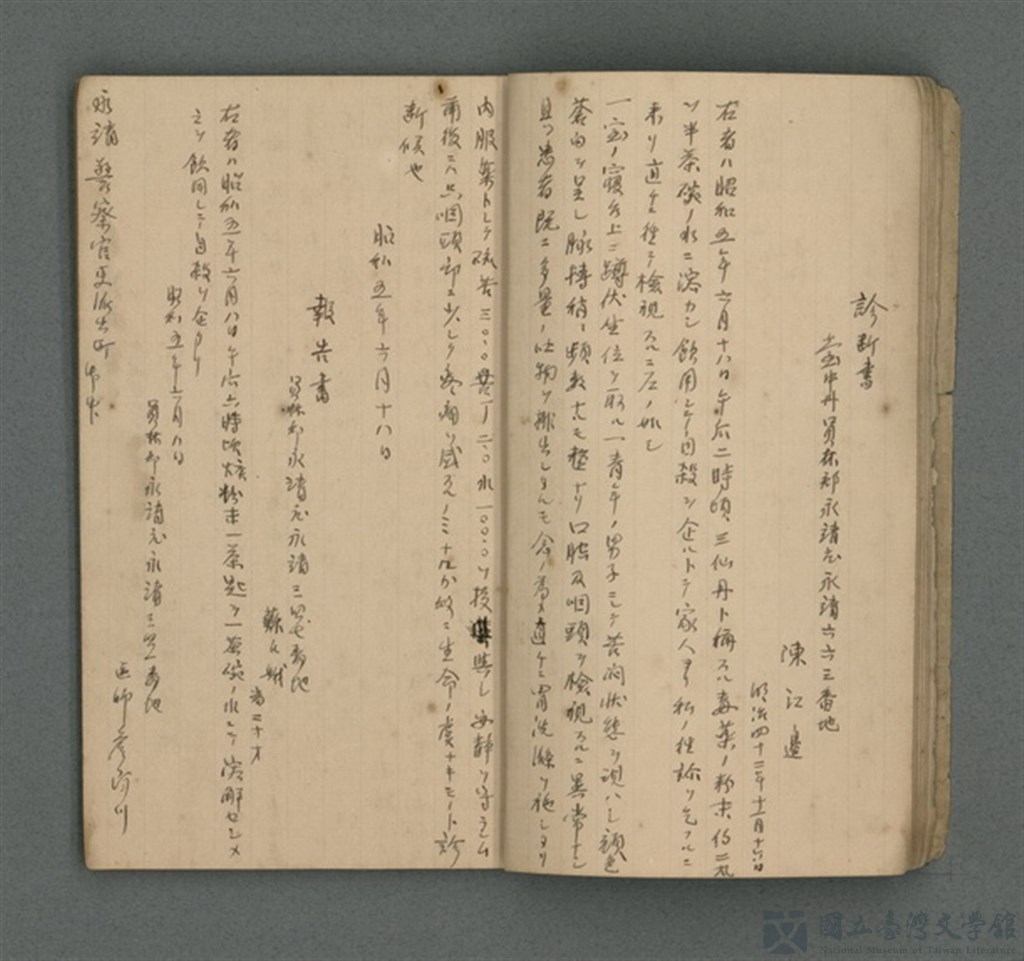 診断書
台中州員林郡永靖庄永靖六六三番地
陳江邊
明治四十二年十二月十六日
右者ハ昭和五年六月十八日午后二時頃、三仙丹ト稱スル毒薬ノ粉末約二瓦
ヲ半茶碗ノ水ニ溶カシ飲用シテ自殺ヲ企ルトテ家人ヨリ私ノ往診ヲ乞フルニ
来リ直ニ往テ檢視スルニ左ノ如シ
一室ノ寝台上ニ蹲伏坐位ヲ取ル一青年ノ男子ニシテ苦悶状態ヲ現ハシ顔色
蒼白ヲ呈シ脉搏稍々頻数ナルモ整ナリ口腔及咽頭ヲ檢視スルニ異常ナシ
且つ患者既ニ多量ノ吐物ヲ排出シタルモ念ノ為メ直ケニ胃洗滌ヲ施シタリ
内服薬トシテ 三〇.〇 二.〇 水一〇〇.〇ヲ投與シ安静ヲ守ラシム
爾後ニハ只咽頭部ニ少シク疼痛ヲ感スルノミナルが故ニ生命ノ虞ナキモノト診
断候也
昭和五年六月十八日
報告書
員林郡永靖庄永靖三四七番地
蘇氏
当二十才
右者ハ昭和五年六月八日午后六時頃燐粉末一茶匙ヲ一茶碗ノ水ニテ溶解セシメ
之ヲ飲用シテ自殺ヲ企タリ
昭和五年六月八日
員林郡永靖庄永靖三四一番地
医師
永靖警察官吏派出所御中
國立臺灣文學館
National Museum of Taiwan Literature